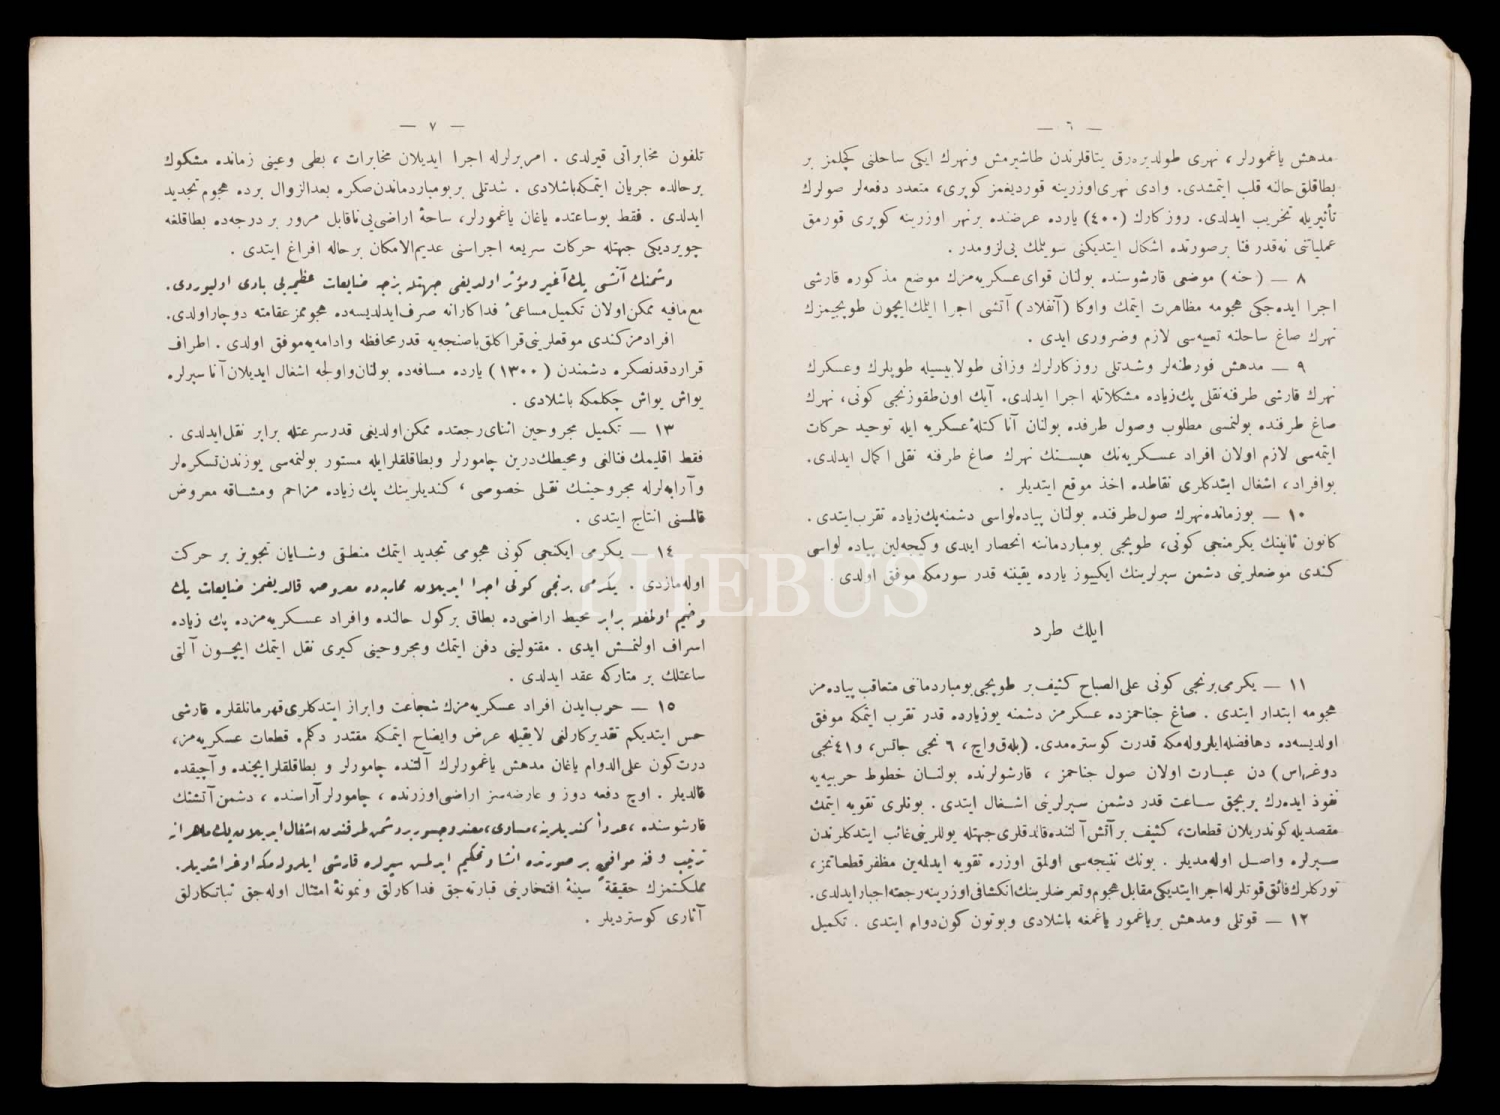 — ٦ —
مدهش یاغمورلر ، نهری طولدیره‌رق یتاقلرندن طاشیرمش ونهرك ایکی ساحلنی کچلمز بر
بطاقلق حالنه قلب ایتمشدی. وادی نهری اوزرینه قوردیغمز کوپری، متعدد دفعه‌لر صولرك
تأثیریله تخریب ایدلدی. روزکارك (٤٠٠) یارده عرضنده برنهر اوزرینه کوپری قورمق
عملیاتنی نه‌قدر فنا برصورتده اشکال ایتدیکنی سویلمك بی‌لزومدر.
٨ — (حنه) موضعی قارشوسنده بولنان قوای عسکریه‌مزك موضع مذکوره قارشی
اجرا ایده‌جکی هجومه مظاهرت ایتمك واوکا (آنفلاد) آتشی اجرا ایتمك ایچون طوپجیمزك
نهرك صاغ ساحلنه تعبیه‌سی لازم وضروری ایدی .
٩ — مدهش فورطنه‌لر وشدتلی روزکارلرك وزانی طولاییسیله طوپلرك وعسکرك
نهرك قارشی طرفنه نقلی پك‌زیاده مشکلاتله اجرا ایدلدی. آیك اون‌طقوزنجی کونی، نهرك
صاغ طرفنده بولنمسی مطلوب وصول طرفده بولنان آنا کتلهٔ عسکریه ایله توحید حرکات
ایتمه‌سی لازم اولان افراد عسکریه‌نك هپسنك نهرك صاغ طرفنه نقلی اکمال ایدلدی.
بوافراد، اشغال ایتدکلری نقاطده اخذ موقع ایتدیلر .
١٠ — بوزمانده نهرك صول طرفنده بولنان پیاده لواسی دشمنه پك‌زیاده تقرب ایتدی .
کانون ثانینك یکرمنجی کونی، طوپجی بومباردماننه انحصار ایلدی وکیجه‌لین پیاده لواسی
کندی موضعلرینی دشمن سپرلرینك ایکیوز یارده یقیننه قدر سورمکه موفق اولدی .
ایلك طرد
١١ — یکرمی برنجی کونی علی‌الصباح کثیف بر طوپجی بومباردمانی متعاقب پیاده‌مز
هجومه ابتدار ایتدی . صاغ جناحمزده عسکرمز دشمنه یوزیارده قدر تقرب ایتمکه موفق
اولدیسه‌ده دهافضله ایلروله‌مکه قدرت کوستره‌مدی. (بله‌ق‌واچ، ٦ نجی جاتس، و٤١ نجی
دوغه‌راس) دن عبارت اولان صول جناحمز ، قارشولرنده بولنان خطوط حربیه‌یه
نفوذ ایده‌رك بربچق ساعت قدر دشمن سپرلرینی اشغال ایتدی . بونلری تقویه ایتمك
مقصدیله کوندریلان قطعات، کثیف برآتش آلتنده قالدقلری جهتله یوللرینی غائب ایتدکلرندن
سپرلره واصل اوله‌مدیلر . بونك نتیجه‌سی اولمق اوزره تقویه ایدلمه‌ین مظفر قطعاتمز،
تورکلرك فائق قوتلرله اجرا ایتدیکی مقابل هجوم وتعرضلرینك انکشافی اوزرینه رجعته اجبار ایدلدی.
١٢ — قوتلی ومدهش بریاغمور یاغمغه باشلادی وبوتون کون دوام ایتدی . تکمیل
— ٧ —
تلفون مخابراتی قیرلدی . امربرلرله اجرا ایدیلان مخابرات ، بطی وعینی زمانده مشکوك
برحالده جریان ایتمکه باشلادی . شدتلی بربومباردماندن صکره بعدالزوال برده هجوم تجدید
ایدلدی . فقط بوساعتده یاغان یاغمورلر، ساحهٔ اراضی‌یی ناقابل مرور بر درجه‌ده بطاقلغه
چویردیکی جهتله حرکات سریعه اجراسنی عدیم‌الامکان برحاله افراغ ایتدی .
دشمنك آتشی پك‌آغیر ومؤثر اولدیغی جهتله بزجه ضایعات عظیمه‌یی بادی اولیوردی.
مع‌مافیه ممکن اولان تکمیل مساعیٔ فداکارانه صرف ایدلدیسه‌ده هجوممز عقامته دوچار اولدی.
افرادمز کندی موقعلرینی قراکلق باصنجه‌یه قدر محافظه وادامه‌یه موفق اولدی . اطراف
قراردقدنصکره دشمندن (١٣٠٠) یارده مسافه‌ده بولنان واولجه اشغال ایدیلان آنا سپرلره
یواش یواش چکلمکه باشلادی .
١٣ — تکمیل مجروحین اثنای رجعتده ممکن اولدیغی قدر سرعتله برابر نقل ایدلدی .
فقط اقلیمك فنالغی ومحیطك درین چامورلر وبطاقلقلرایله مستور بولنمه‌سی یوزندن تسکره‌لر
وآرابه‌لرله مجروحینك نقلی خصوصی ، کندیلرینك پك زیاده مزاحم ومشاقه معروض
قالمسنی انتاج ایتدی .
١٤ — یکرمی ایکنجی کونی هجومی تجدید ایتمك منطقی وشایان تجویز بر حرکت
اوله‌مازدی . یکرمی برنجی کونی اجرا ایدیلان محاربه‌ده معروض قالدیغمز ضایعات پك
وخیم اولمقله برابر محیط اراضی‌ده بطاق برکول حالنده وافراد عسکریه‌مزده پك زیاده
اسراف اولنمش ایدی . مقتولینی دفن ایتمك ومجروحینی کیری نقل ایتمك ایچون آلتی
ساعتلك بر متارکه عقد ایدلدی .
١٥ — حرب‌ایدن افراد عسکریه‌مزك شجاعت وابراز ایتدکلری قهرمانلقلره قارشی
حس ایتدیکم تقدیرکارلغی لایقیله عرض وایضاح ایتمکه مقتدر دکلم. قطعات عسکریه‌مز،
درت کون علی‌الدوام یاغان مدهش یاغمورلرك آلتنده چامورلر و بطاقلقلرایچنده وآچیقده
قالدیلر . اوچ دفعه دوز و عارضه‌سز اراضی اوزرنده ، چامورلر آراسنده ، دشمن آتشنك
قارشوسنده ، عدداً کندیلرینه مساوی، معند وجسور بردشمن طرفندن اشغال ایدیلان پك ماهرانه
ترتیب و فنه موافق بر صورتده انشا وتحکیم ایدلمش سپرلره قارشی ایلرولمکه اوغراشدیلر.
مملکتمزك حقیقةً سینهٔ افتخارینی قبارته‌جق فداکارلق ونمونهٔ امتثال اوله‌جق ثباتکارلق
آثاری کوستردیلر .
PHEBUS